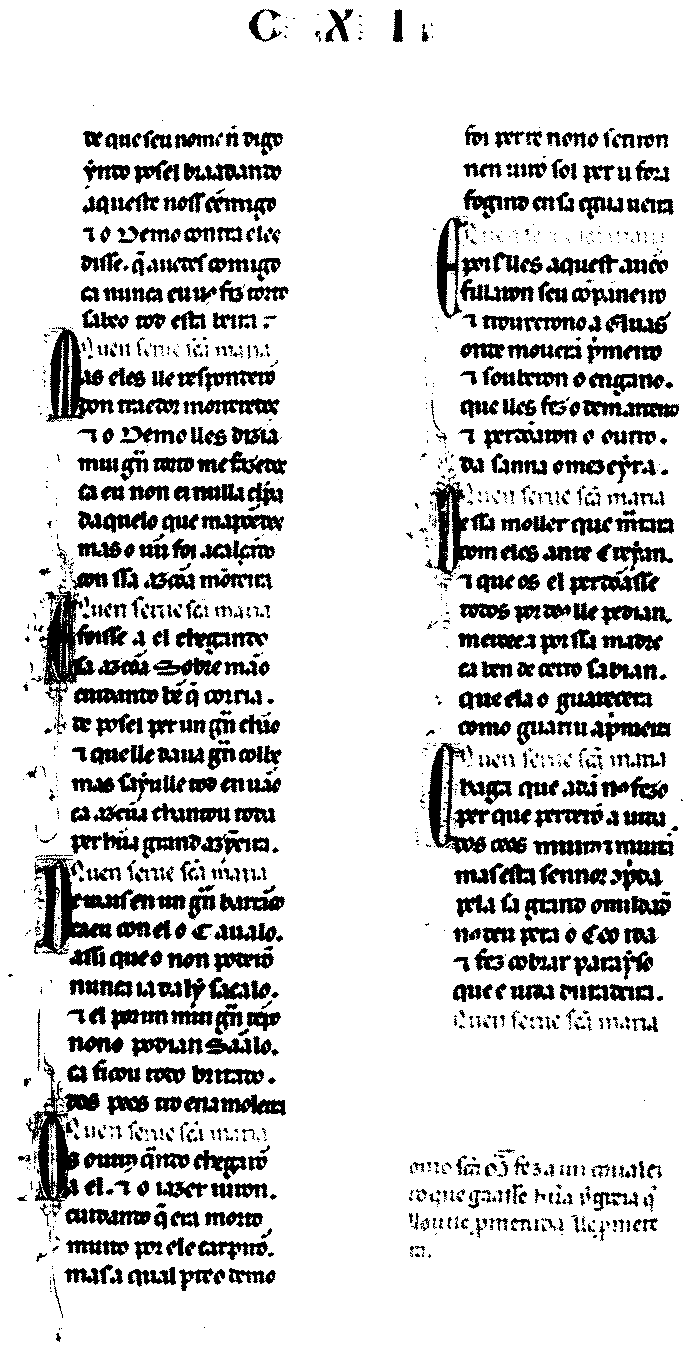 C X I
de que seu nome ñ digo
ýndo posel braadando
aqueste noss ẽemigo
⁊ o Demo contra eles
disse. q̃ auedes comigo
ca nunca eu u⁹ fiz torto
salvo tod esta
Quen serue scã maria
as eles lle responderõ
don traedor
⁊ o Demo lles dizia
mui gñ torto me fazedes
ca eu non ei nulla clpa
daquelo que
mas o uñ foi acalçado
con ssa azcũa mõteira
Quen serue scã maria
foisse a el chegando
sa azcũa Sobre mão
cuidando bẽ q̃ corria.
de posel per un gñ chão
⁊ quelle daua gñ colbe
mas sayulle tod en uão
ca azcũa chantou toda
per hũa grand azỹeira.
Quen serue scã maria
en un gñ barrãco
caeu con el o Caualo.
assi que o non poderõ
nunca ia dalý sacalo.
⁊ el por un mui gñ tẽpo
nono podian Sãalo.
ca ficou todo britado.
dos pees
Quen serue scã maria
s outrꝯ q̃ndo chegarõ
a el. ⁊ o iazer uiron.
cuidando q̃ era morto
muito por ele carpirõ.
mas a qual o demo
foi per de nono sentiron
nen uiron sol per u fora
fogindo en sa
Quen serue scã maria
pois lles aquest auẽo
fillaron seu cõpaneiro
⁊ trouxerono a Eluas
onde mouera p̃meiro
⁊ souberon o engano.
que lles fez o demandeiro
⁊ perdõaron o outro.
da sanna omezeýra.
Quen serue scã maria
essa moller que
com eles ante Creýan.
⁊ que os el perdõasse
todos por do⁹ lle pedian.
mercee a por ssa madre
ca ben de certo sabian.
que ela o guarecera
como guariu ap̃meira
Quen serue scã maria
haga que adã nos fezo
per que perderõ a uida
dos ceos muitꝯ ⁊ muitas
mas esta sennor ꝯp̃da
pela sa grand omildade
nos deu pera o Ceo ida
⁊ fez cobrar parayso
que e uida duradeira.
Quen serue scã maria
omo scã M̃ fez a un caualeiro